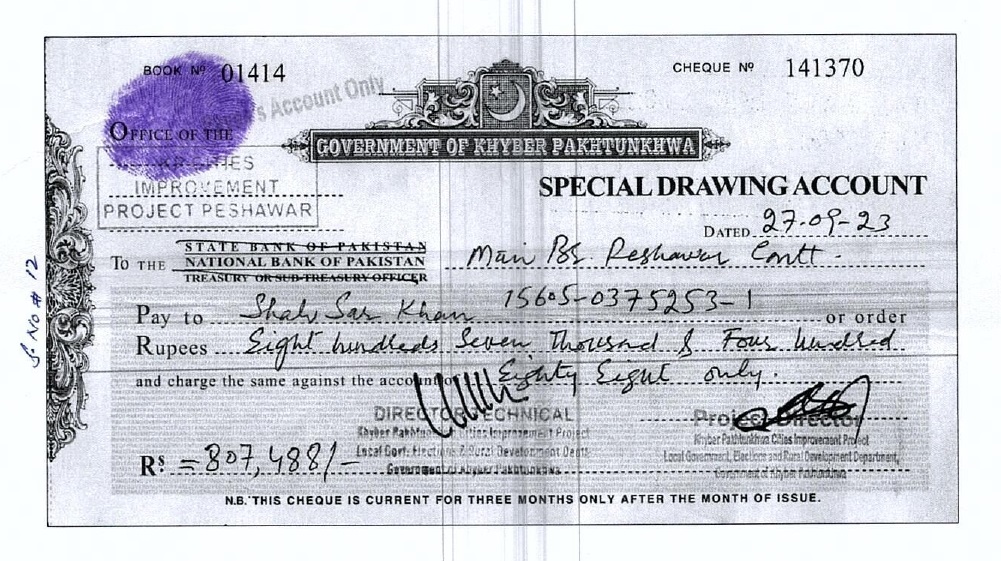 BOOK Nº 01414
CHEQUE Nº 141370
Account Only
OFFICE OF THE
GOVERNMENT OF KHYBER PAKHTUNKHWA
CITIES
IMPROVEMENT
PROJECT PESHAWAR
SPECIAL DRAWING ACCOUNT
DATED 27-09-23
STATE BANK OF PAKISTAN
TO THE NATIONAL BANK OF PAKISTAN Main Br. Peshawar Cantt.
TREASURY OR SUB-TREASURY OFFICER
S. No # 12
Pay to Shah Sar Khan 15605-0375253-1 or order
Rupees Eight hundreds Seven Thousand & Four hundred
and charge the same against the account of Eighty Eight only.
DIRECTOR TECHNICAL
Khyber Pakhtunkhwa Cities Improvement Project
Local Govt, Elections & Rural Development Deptt
Government of Khyber Pakhtunkhwa
Project Director
Khyber Pakhtunkhwa Cities Improvement Project
Local Government, Elections and Rural Development Department,
Government of Khyber Pakhtunkhwa
Rs =807,488/-
N.B. THIS CHEQUE IS CURRENT FOR THREE MONTHS ONLY AFTER THE MONTH OF ISSUE.